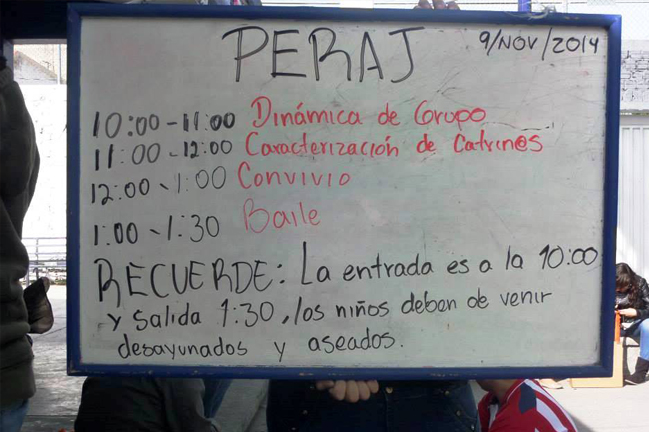 PERAJ
9/NOV/2014
10:00-11:00 Dinámica de Grupo
11:00-12:00 Caracterización de Catrin@s
12:00-1:00 Convivio
1:00-1:30 Baile
RECUERDE: La entrada es a la 10:00
y salida 1:30, los niños deben de venir
desayunados y aseados.